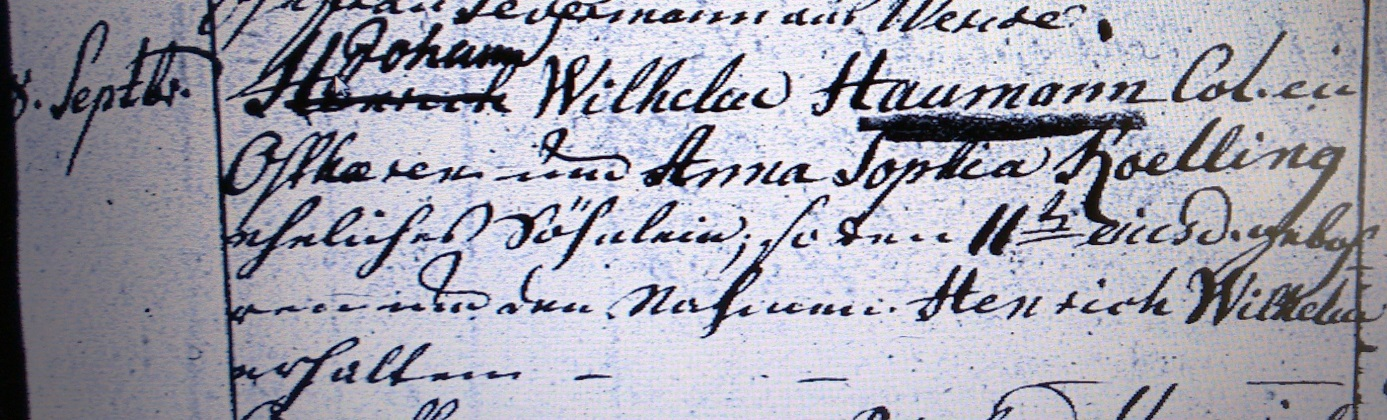 Severmann aus Werste.
8. Septbr. Johann
Henrich Wilhelm Haumann Col. in
Ostkæren und Anna Sophia Koelling
eheliches Söhnlein, so den 11ten eiusd. geboh
ren und den Nahmen Henrich Wilhelm
erhalten — —